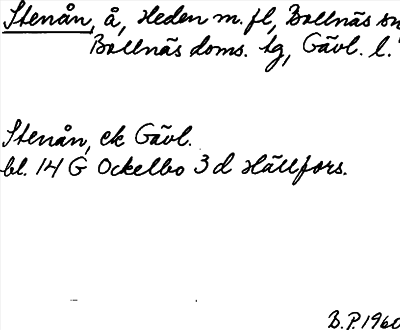 Stenån, å, Heden m. fl, Bollnäs sn
Bollnäs doms. tg, Gävl. l.
Stenån, ek Gävl.
bl. 14 G Ockelbo 3 d Hällfors.
B.P. 1960